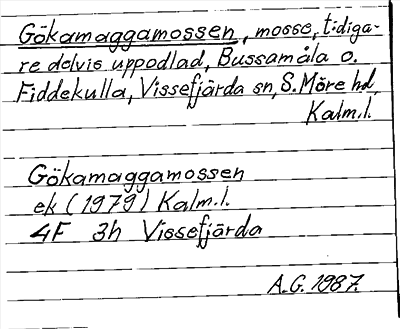 Gökamaggamossen, mosse, tidiga-
re delvis uppodlad, Bussamåla o.
Fiddekulla, Vissefjärda sn, S. Möre hd,
Kalm.l.
Gökamaggamossen
ek (1979) Kalm.l.
4F 3h Vissefjärda
A.G. 1987.